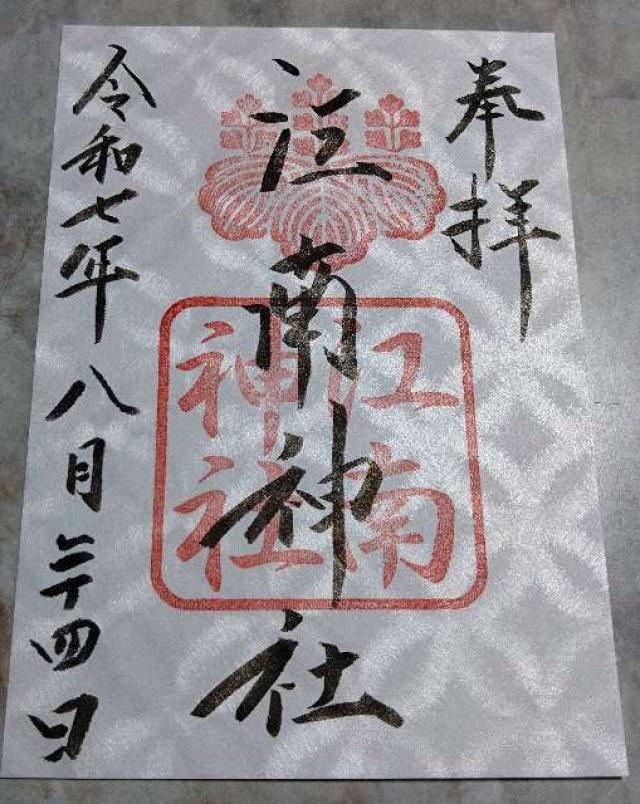 奉拝
江南神社
江南
神社
令和七年八月二十四日